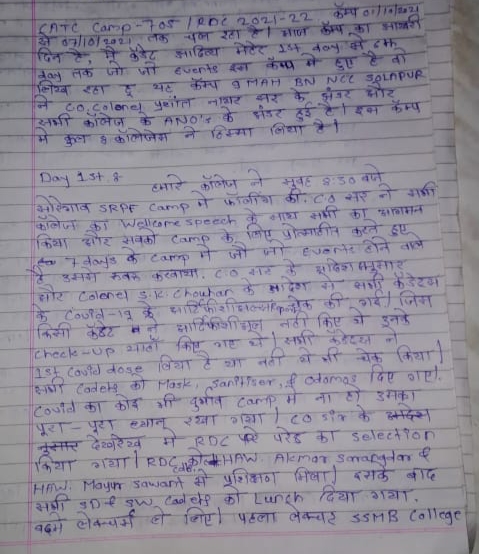 CATC Camp - 705 / RDC 2021-22 कॅम्प 01/10/2021
से 07/10/2021 तक चल रहा है। आज कॅम्प का आखरी
दिन है, मैं कॅडेट आदित्य 1st day से 6th
day तक जो जो events इस कॅम्प में हुए है वो
लिख रहा हू यह कॅम्प 9 MAH BN NCC SOLAPUR
ने CO. Colonel सर के अंडर और
सभी कॉलेज के ANO's के अंडर हुई है। इस कॅम्प
मे कुल 8 कॉलेजेस ने हिस्सा लिया है।
Day 1st :-
हमारे कॉलेज ने सुबह 8:30 बजे
सोरेगाव SRPF Camp में फॉलीन की. C.O सर ने सभी
कॉलेज का Welcome speech के साथ सभी का आगमन
किया और सबको Camp के लिए प्रोत्साहित करते हुए
7 days के Camp में जो जो events होने वाले
है उससे रुबरु करवाया. C.O सर के आदेश अनुसार
और Colonel S.K. Chouhan के आदेश से सभी कॅडेटस
के Covid-19 के चेक की गई। जिस
किसी कॅडेट ने नही किए थे उनके
check-up वहाँ किए गए थे। सभी कॅडेटस ने
1st Covid dose लिया है या नही ये भी चेक किया।
सभी Cadets को Mask, Sanitisor, & odomas दिए गए।
Covid का कोई भी दुर्भाव Camp में ना हो इसका
पूरा-पूरा ध्यान रखा गया। CO sir के
देखरेख में RDC परेड का selection
किया गया। RDC को HAW. &
HAW. Mayur Sawant से प्रशिक्षण मिला। इसके बाद
सभी SD & SW Cadets को Lunch दिया गया.
बादमे लेक्चर्स हो लिए। पहला लेक्चर SSMB College